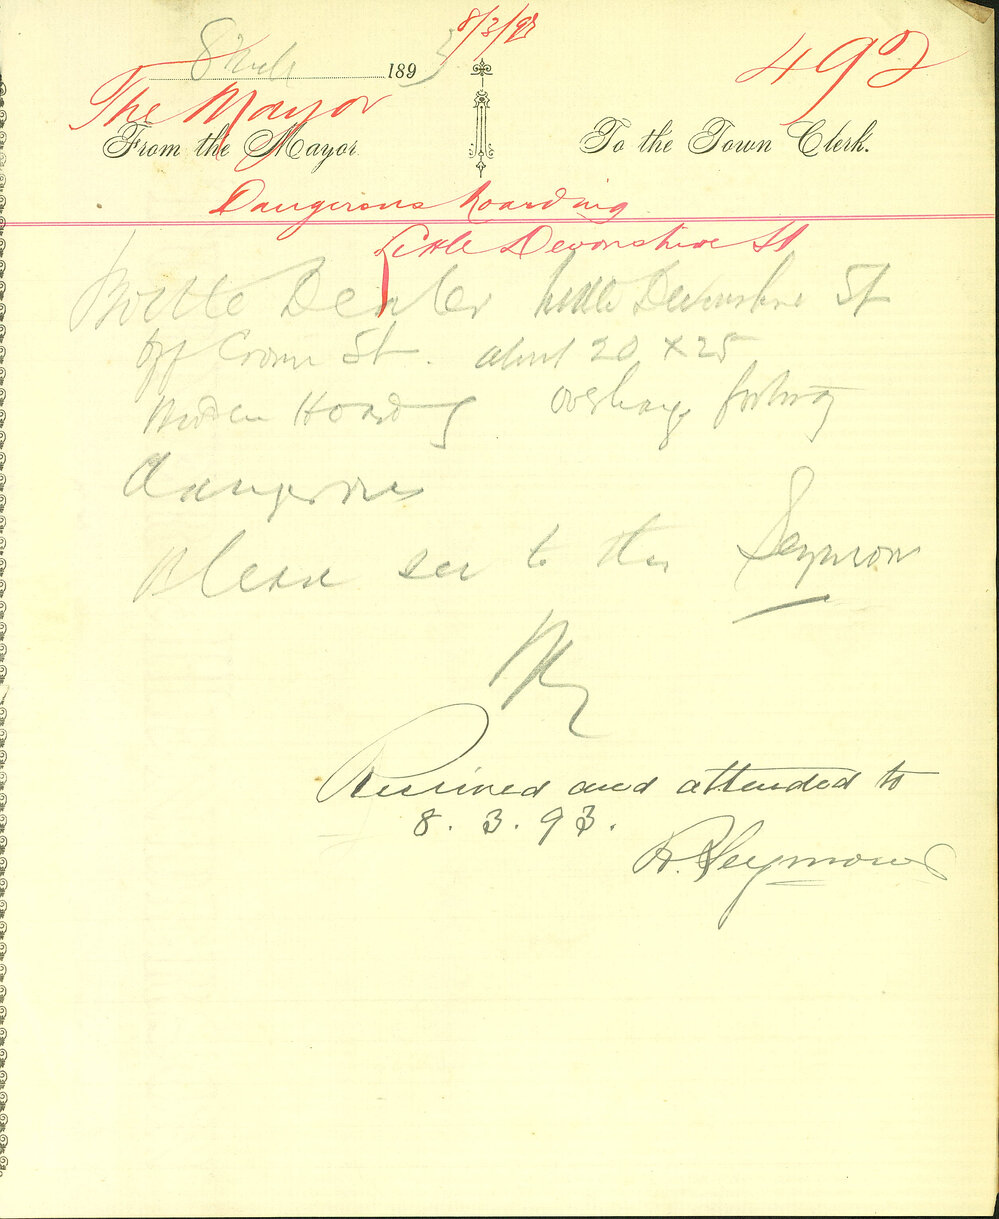 8/3/93
8 Mch 1893
492
The Mayor
From the Mayor
To the Town Clerk.
Dangerous Hoarding
Little Devonshire St
Bottle Dealer Little Devonshire St
off Crown St. about 20 x 25
Wooden Hoarding overhangs footway
dangerous
Please see to this Seymour
Received and attended to
8.3.93.
R. Seymour